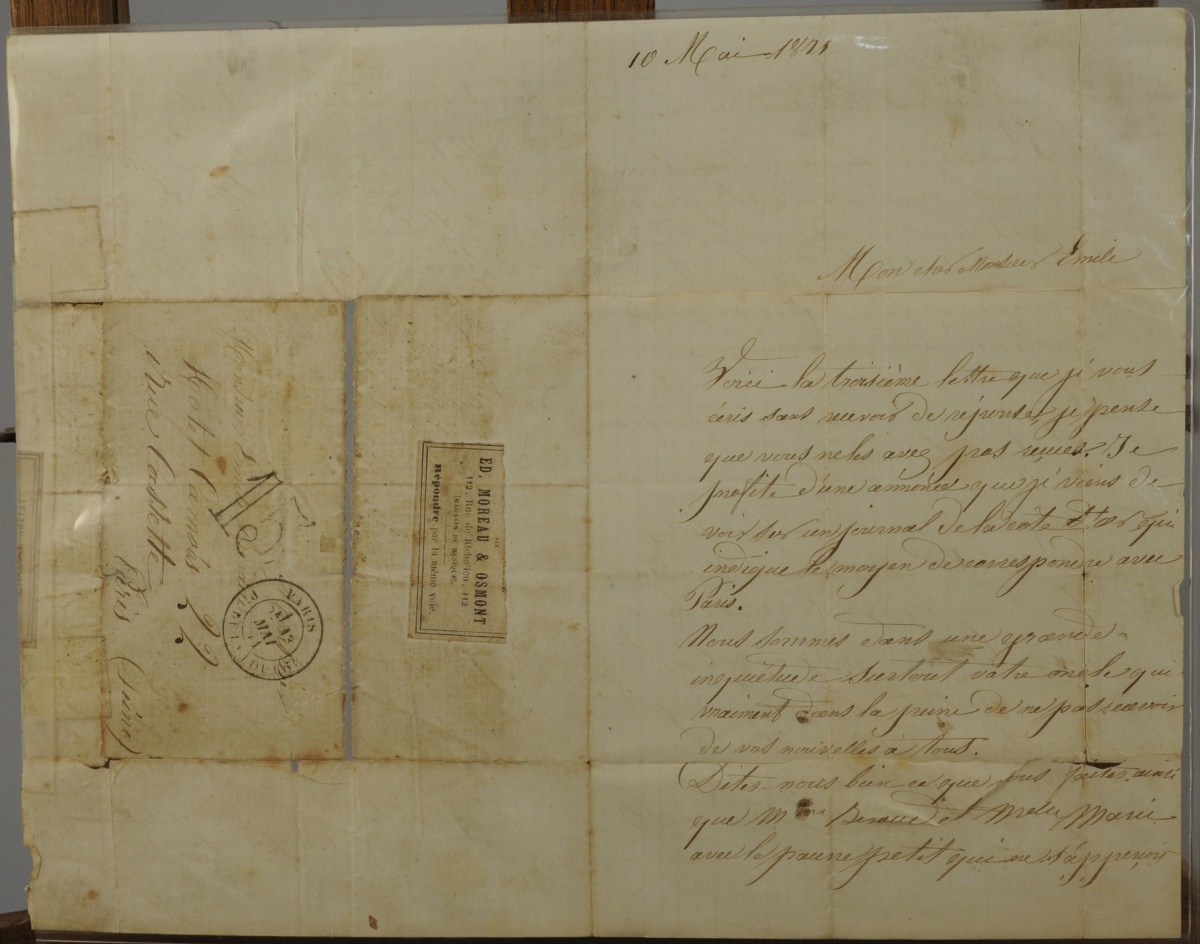 10 Mai 1871
Mon cher Monsieur Emile
Voici la troisième lettre que je vous
écris sans recevoir de réponse, je pense
que vous ne les avez pas reçues. Je
profite d'une annonce que je viens de
voir sur un journal de la côte d'or qui
indique le moyen de correspondre avec
Paris.
Nous sommes dans une grande
inquiétude surtout votre oncle qui
vraiment dans la peine de ne pas recevoir
de vos nouvelles à tous.
Dites-nous bien ce que vous faites ainsi
que Mme et Melle Marie
avec le pauvre petit qui ne
ED. MOREAU & OSMONT
112, Rue de Richelieu, 112
(MAISON DE MUSIQUE)
Répondre par la même voie.
Monsieur
Hotel
rue Cassette 22
Paris (Seine)
PARIS
MAI
71